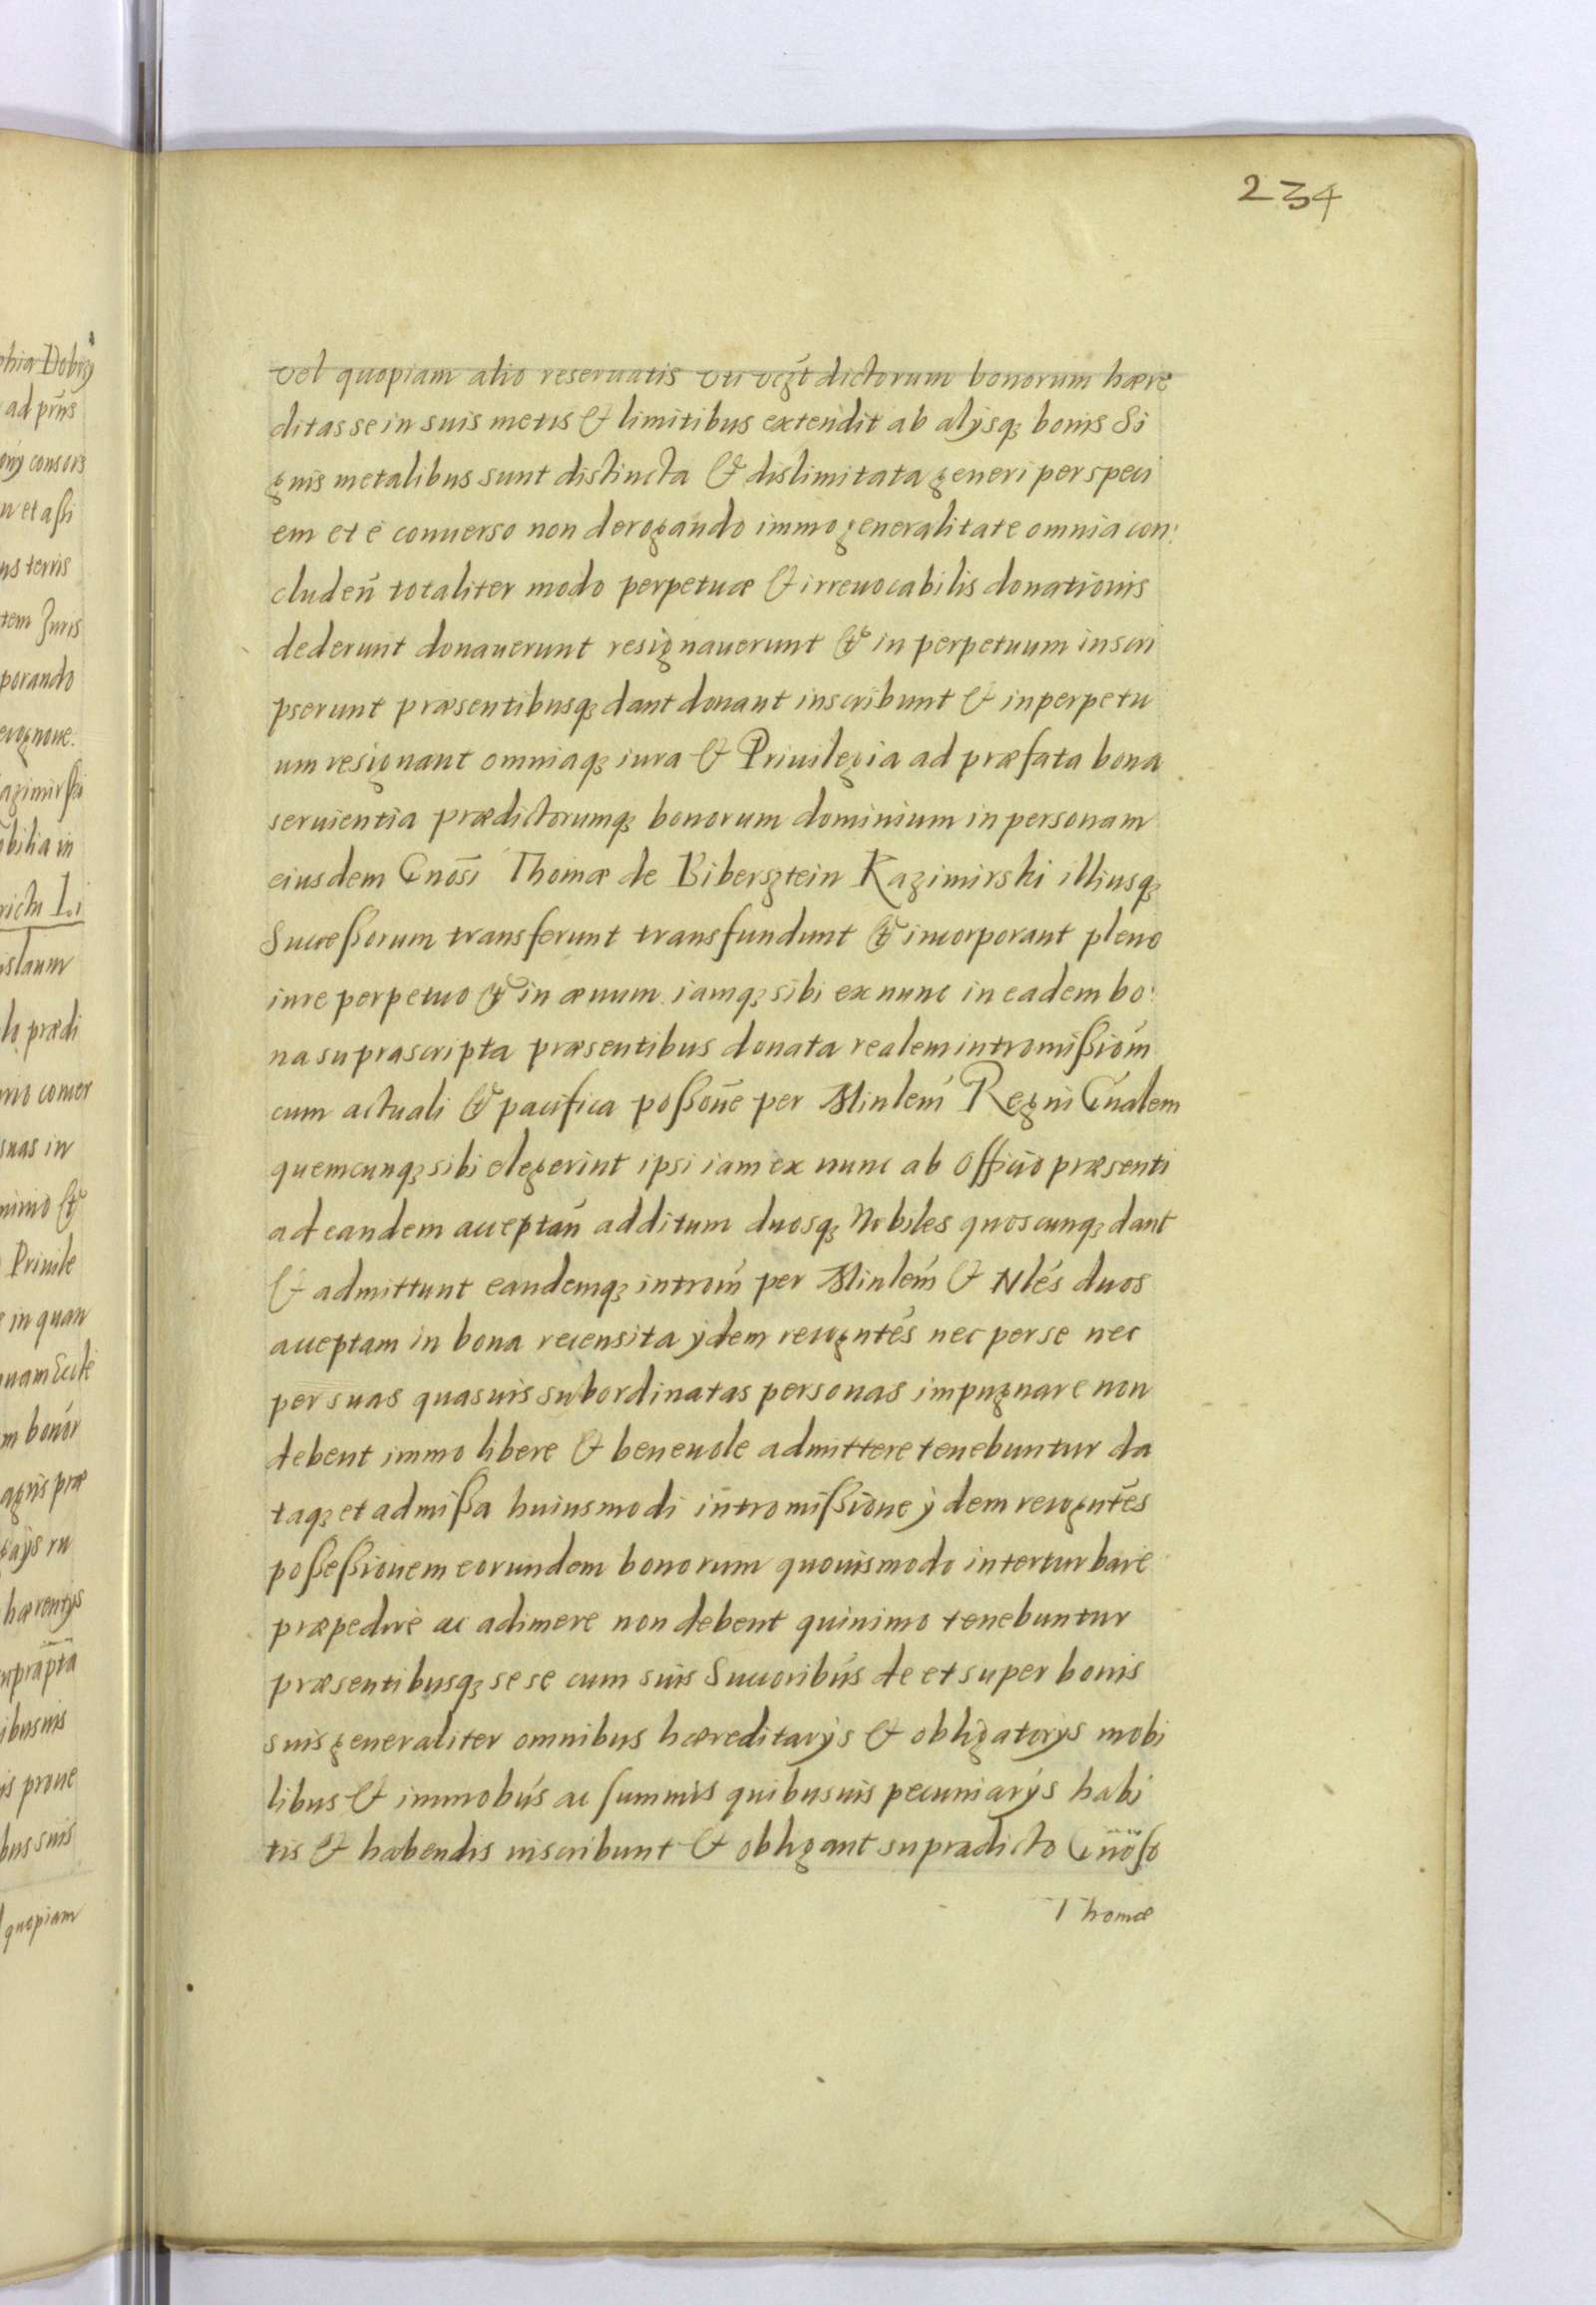 234
phia Dobrzy
ad prńs
ony consors
n et assi
ns terris
tem Juris
porando
ecognoue.
azimirski
obilia in
rictu Li
islaum
lo prædi
rio conuer
suas in
minio &
Priuile
e in quan
m bonór
agris præ
hærentys
ibusuis
is proue
bus suis
quopiam
vel quopiam alio reseruatis vti vigt́ dictorum bonorum hære
ditas se in suis metis & limitibus extendit ab alysq; bonis Si
gnis metalibus sunt distincta & dislimitata generi per speci
em et e conuerso non derogando immo generalitate omnia con:
cludeń totaliter modo perpetuæ & irreuocabilis donationis
dederunt donauerunt resignauerunt & in perpetuum inscri
pserunt præsentibusq; dant donant inscribunt & inperpetu
um resignant omniaq; iura & Priuilegia ad præfata bona
seruientia prædictorumq; bonorum dominium in personam
eiusdem Gnōsi Thomæ de Bibersztein Kazimirski illiusq;
Successorum transferunt transfundunt & incorporant pleno
iure perpetuo & in æuum iamq; sibi ex nunc in eadem bo:
na suprascripta præsentibus donata realem intromissiom̄
cum actuali & pacifica possoñe per Minlem̄ Regni Gńalem
quemcunq; sibi elegerint ipsi iam ex nunc ab Officio præsenti
ad eandem acceptań additum duosq; Nobiles quoscunq; dant
& admittunt eandemq; introḿ per Minleḿ & Nlés duos
acceptam in bona recensita ydem recogntés nec per se nec
per suas quasuis subordinatas personas impugnare non
debent immo libere & beneuole admittere tenebuntur da
taq; et admissa huiusmodi intromissione ydem recogntés
possessionem eorundem bonorum quouismodo interturbare
præpedire ac adimere non debent quinimo tenebuntur
præsentibusq; sese cum suis Succoribús de et super bonis
suis generaliter omnibus hæreditarys & obligatorys mobi
libus & immobús ac summis quibusuis pecuniarys habi
tis & habendis inscribunt & obligant supradicto Gńoso
Thomæ